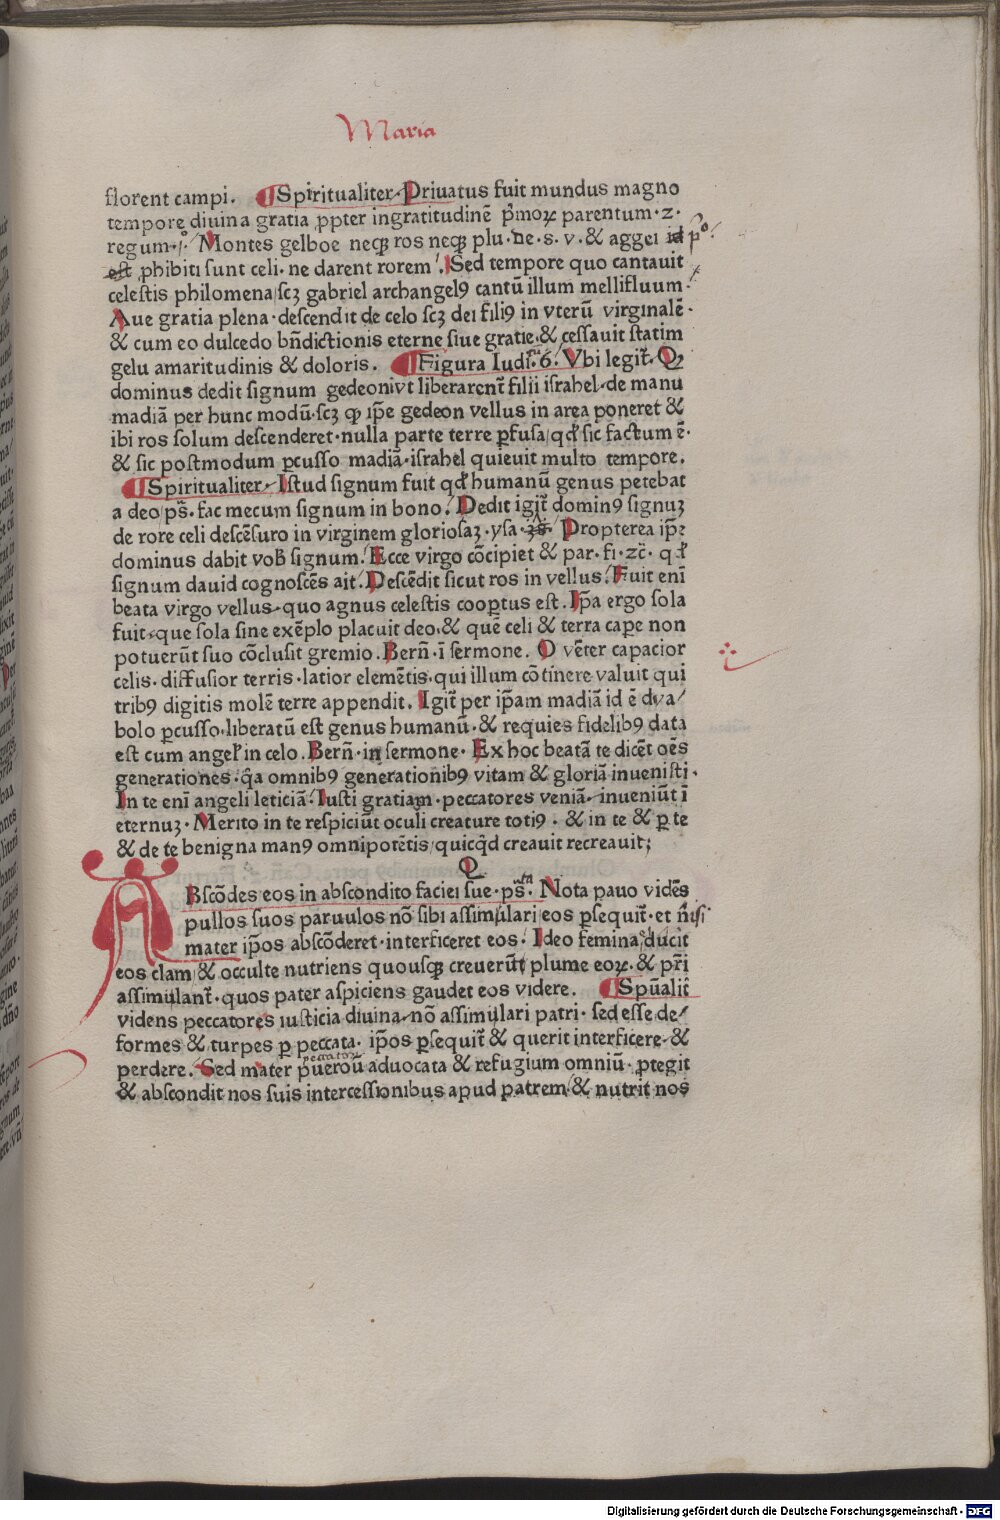 Maria
florent campi. ¶Spiritualiter Priuatus fuit mundus magno
tempore diuina gratia ꝓpter ingratitudinē p̄moꝝ parentum·2·
regum·j͛ Montes gelboe neqꝫ ros neqꝫ plu·ve·s·v·& aggei id pº
est ꝓhibiti sunt celi·ne darent rorem. Sed tempore quo cantauit
celestis philomena/scꝫ gabriel archangelꝰ cantū illum mellifluum·
Aue gratia plena·descendit de celo scꝫ dei filiꝰ in vterū virginalē·
& cum eo dulcedo bn̄dictionis eterne siue gratie·& cessauit statim
gelu amaritudinis & doloris. ¶Figura Iudi.6. Vbi legit̄· Qꝫ
dominus dedit signum gedeoni vt liberarent̄ filii israhel·de manu
madiā per hunc modū·scꝫ ꝙ ip̄e gedeon vellus in area poneret &
ibi ros solum descenderet·nulla parte terre ꝑfusa/qđ sic factum ē·
& sic postmodum ꝑcusso madiā·israhel quieuit multo tempore.
¶Spiritualiter· Istud signum fuit qđ humanū genus petebat
a deo/ps̄. fac mecum signum in bono. Dedit igit̄ dominꝰ signuꝫ
de rore celi descēsuro in virginem gloriosaꝫ·ysa· Propterea ip̄e
dominus dabit vob̄ signum. Ecce virgo cōcipiet & par·fi·ꝛc̄· qđ
signum dauid cognoscēs ait. Descēdit sicut ros in vellus. Fuit enī
beata virgo vellus·quo agnus celestis cooꝑtus est. Ip̄a ergo sola
fuit·que sola sine exēplo placuit deo·& quē celi & terra caꝑe non
potuerūt suo cōclusit gremio. Bern̄·ī sermone. O vēter capacior
celis·diffusior terris·latior elemētis·qui illum cōtinere valuit qui
tribꝰ digitis molē terre appendit. Igit̄ per ip̄am madiā id ē dya/
bolo ꝑcusso·liberatū est genus humanū·& requies fidelibꝰ data
est cum angel̄ in celo. Bern̄·in sermone· Ex hoc beatā te dicēt oēs
generationes·q̄a omnibꝰ generationibꝰ vitam & gloriā inuenisti·
In te enī angeli leticiā. Iusti gratiam·peccatores veniā·inueniūt ī
eternuꝫ· Merito in te respiciūt oculi creature totiꝰ·& in te & ꝑ te
& de te benigna manꝰ omnipotētis/quicq̄d creauit recreauit;
Q
ABscōdes eos in abscondito faciei sue·ps̄. Nota pauo vidēs
pullos suos paruulos nō sibi assimulari/eos ꝑsequit̄·et n̄isi
mater ip̄os abscōderet·interficeret eos. Ideo femina ducit
eos clam/& occulte nutriens quousqꝫ creuerūt plume eoꝝ·& pr̄i
assimulant̄·quos pater aspiciens gaudet eos videre. ¶Spūalit̄
videns peccatores iusticia diuina·nō assimulari patri·sed esse de/
formes & turpes ꝑ peccata·ip̄os ꝑsequit̄ & querit interficere·&
perdere. Sed mater aduocata & refugium omniū·ꝓtegit
& abscondit nos suis intercessionibus apud patrem·& nutrit nos
Digitalisierung gefördert durch die Deutsche Forschungsgemeinschaft - DFG